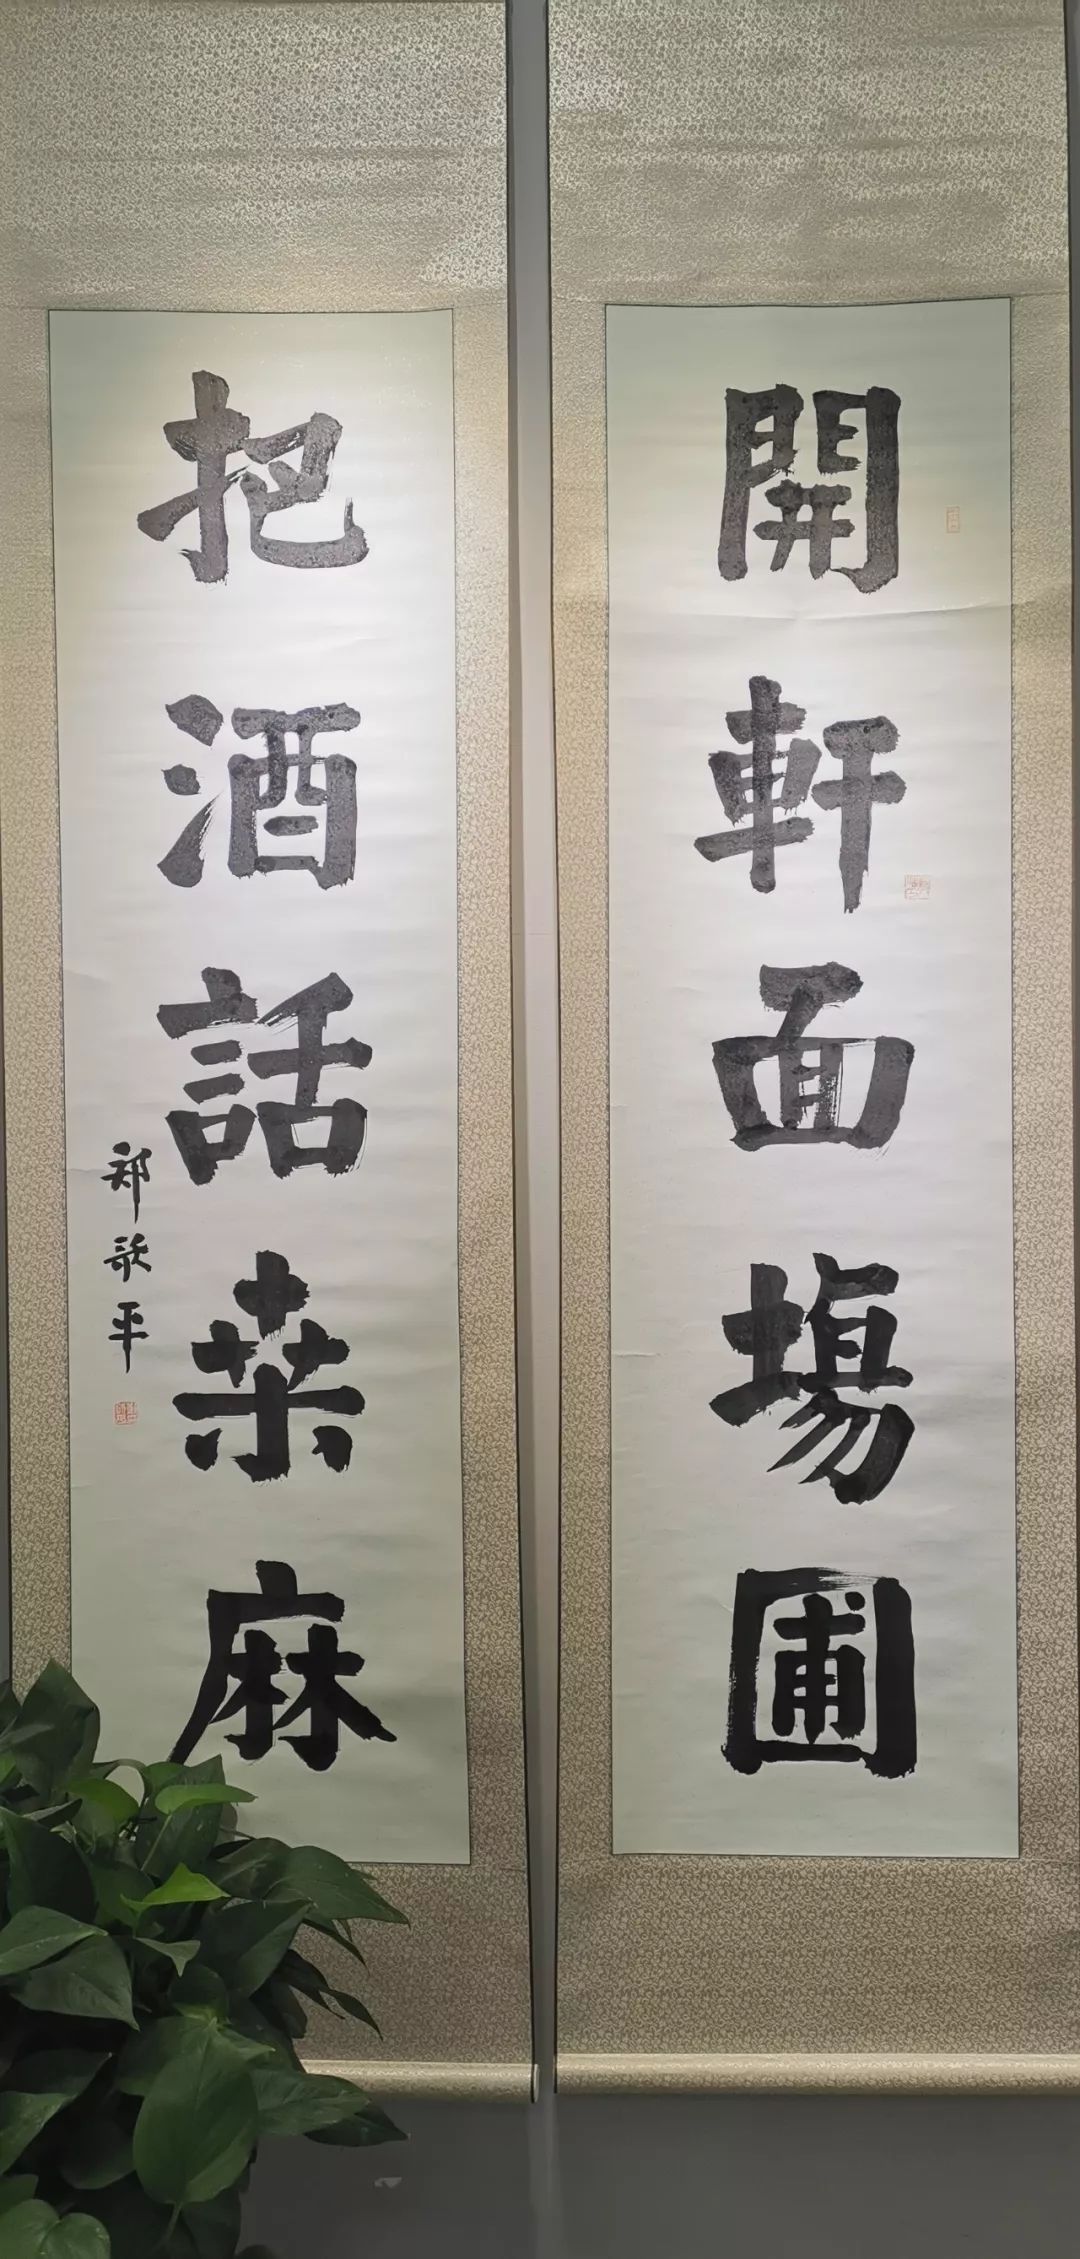 開軒面場圃
把酒話桒麻
郑歌平